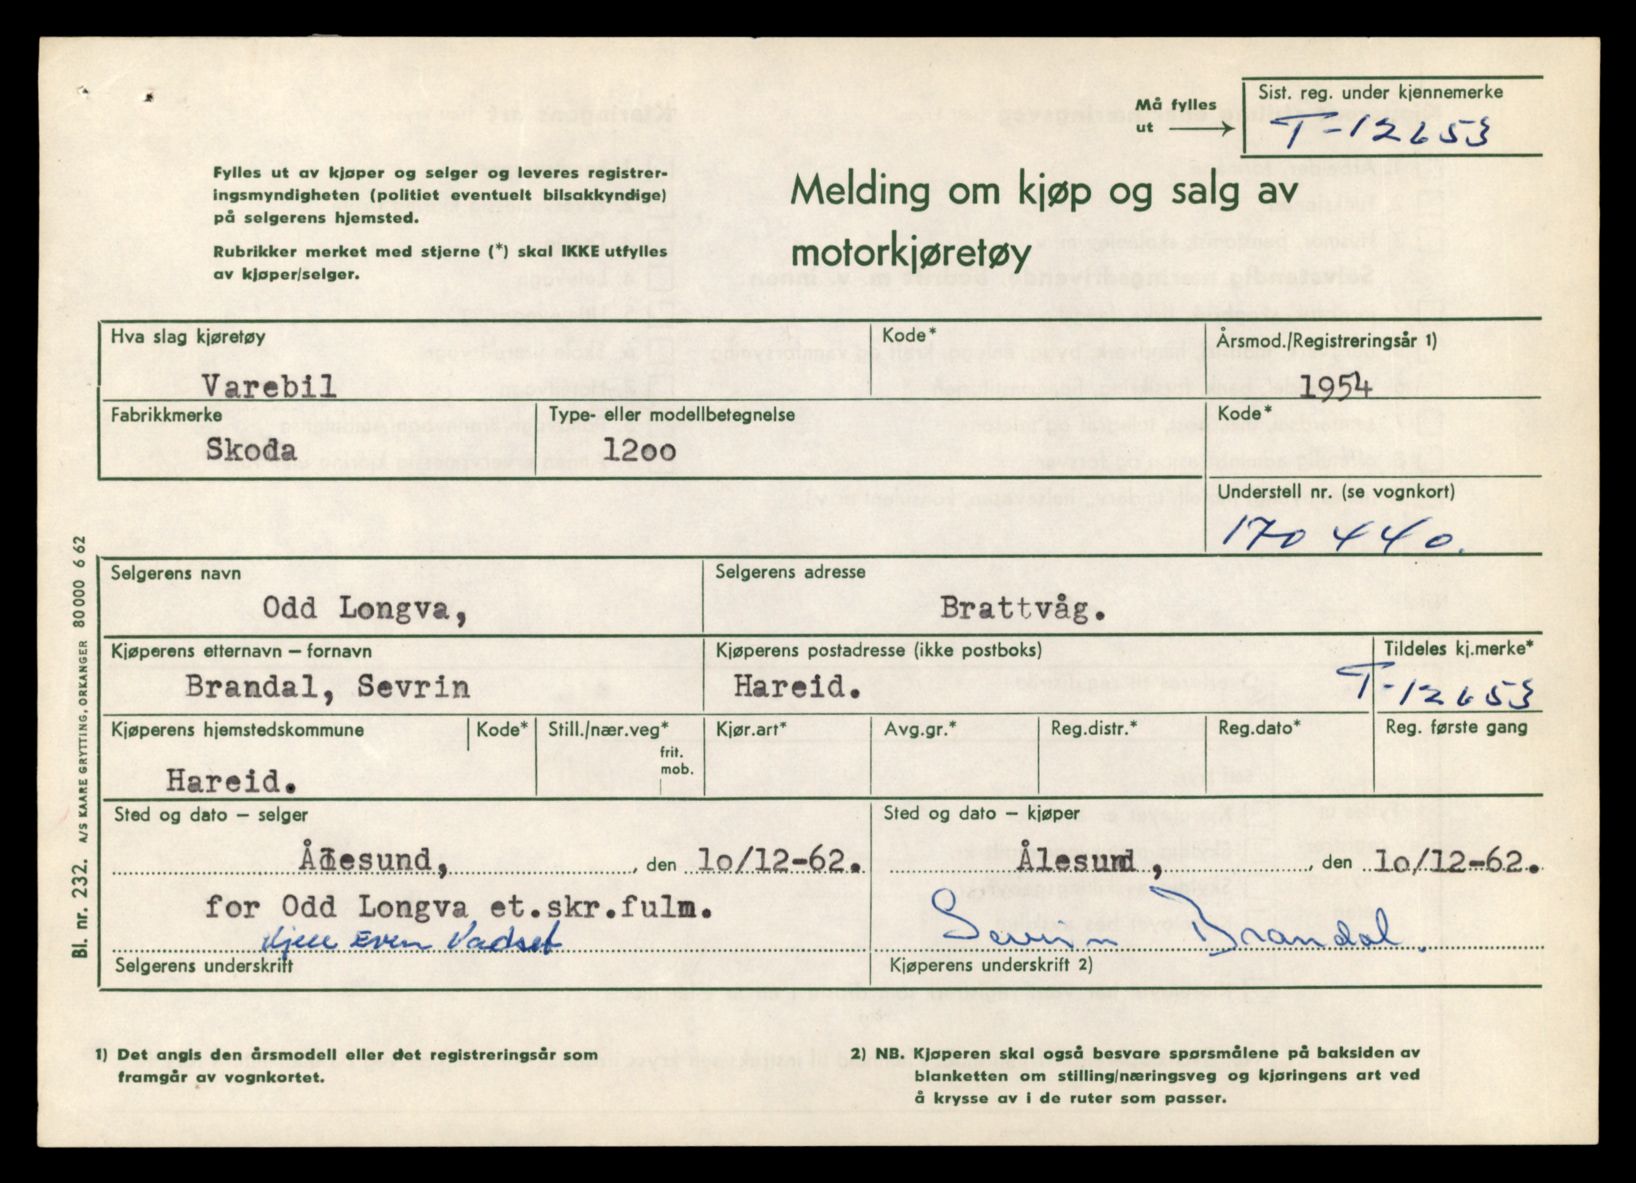 Må fylles
ut
Sist. reg. under kjennemerke
T-12653
Fylles ut av kjøper og selger og leveres registrer-
ingsmyndigheten (politiet eventuelt bilsakkyndige)
på selgerens hjemsted.
Rubrikker merket med stjerne (*) skal IKKE utfylles
av kjøper/selger.
Melding om kjøp og salg av
motorkjøretøy
Hva slag kjøretøy
Kode*
Årsmod./Registreringsår 1)
Varebil
1954
Fabrikkmerke
Type- eller modellbetegnelse
Kode*
Skoda
12oo
Understell nr. (se vognkort)
170440.
Selgerens navn
Selgerens adresse
Odd Longva,
Brattvåg.
Kjøperens etternavn – fornavn
Kjøperens postadresse (ikke postboks)
Tildeles kj.merke*
Brandal, Sevrin
Hareid.
T-12653
Kjøperens hjemstedskommune
Kode*
Still./nær.veg*
frit.
mob.
Kjør.art*
Avg.gr.*
Reg.distr.*
Reg.dato*
Reg. første gang
Hareid.
Sted og dato – selger
Sted og dato – kjøper
Ålesund, , den lo/12-62.
Ålesund , , den lo/12-62.
for Odd Longva et.skr.fulm.
Kjell Even Vadset
Sevrin Brandal.
Selgerens underskrift
Kjøperens underskrift 2)
1) Det angis den årsmodell eller det registreringsår som
framgår av vognkortet.
2) NB. Kjøperen skal også besvare spørsmålene på baksiden av
blanketten om stilling/næringsveg og kjøringens art ved
å krysse av i de ruter som passer.
Bl. nr. 232. A/S KAARE GRYTTING, ORKANGER 80000 6 62